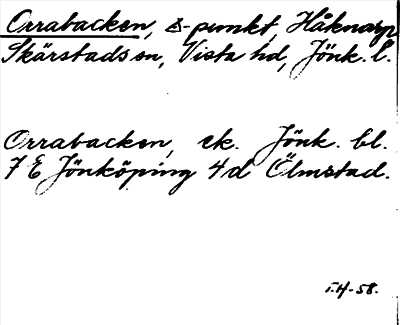 Orrabacken, s-punkt, Håknarp
Skärstads sn, Vista hd, Jönk. l.
Orrabacken, ek. Jönk. bl.
7 E Jönköping 4 d Ölmstad.
T.H-58.